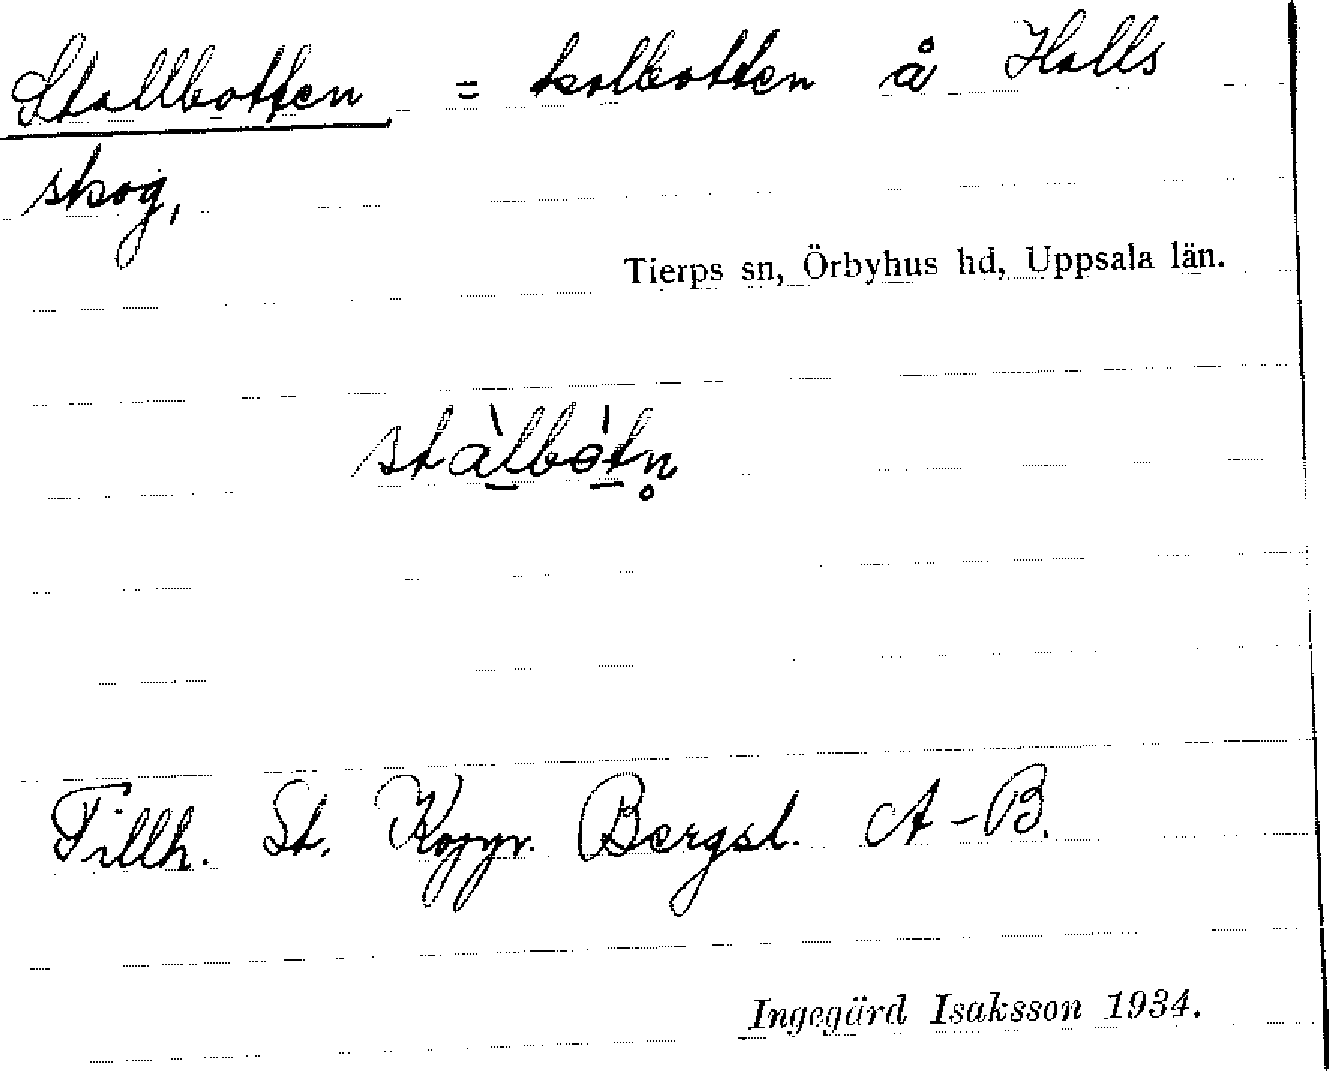 Stallbotten = kolbotten å Halls
skog,
Tierps sn, Örbyhus hd, Uppsala län.
stàlbòtn̥
Tillh. St. Koppr. Bergsl. A-B.
Ingegärd Isaksson 1934.